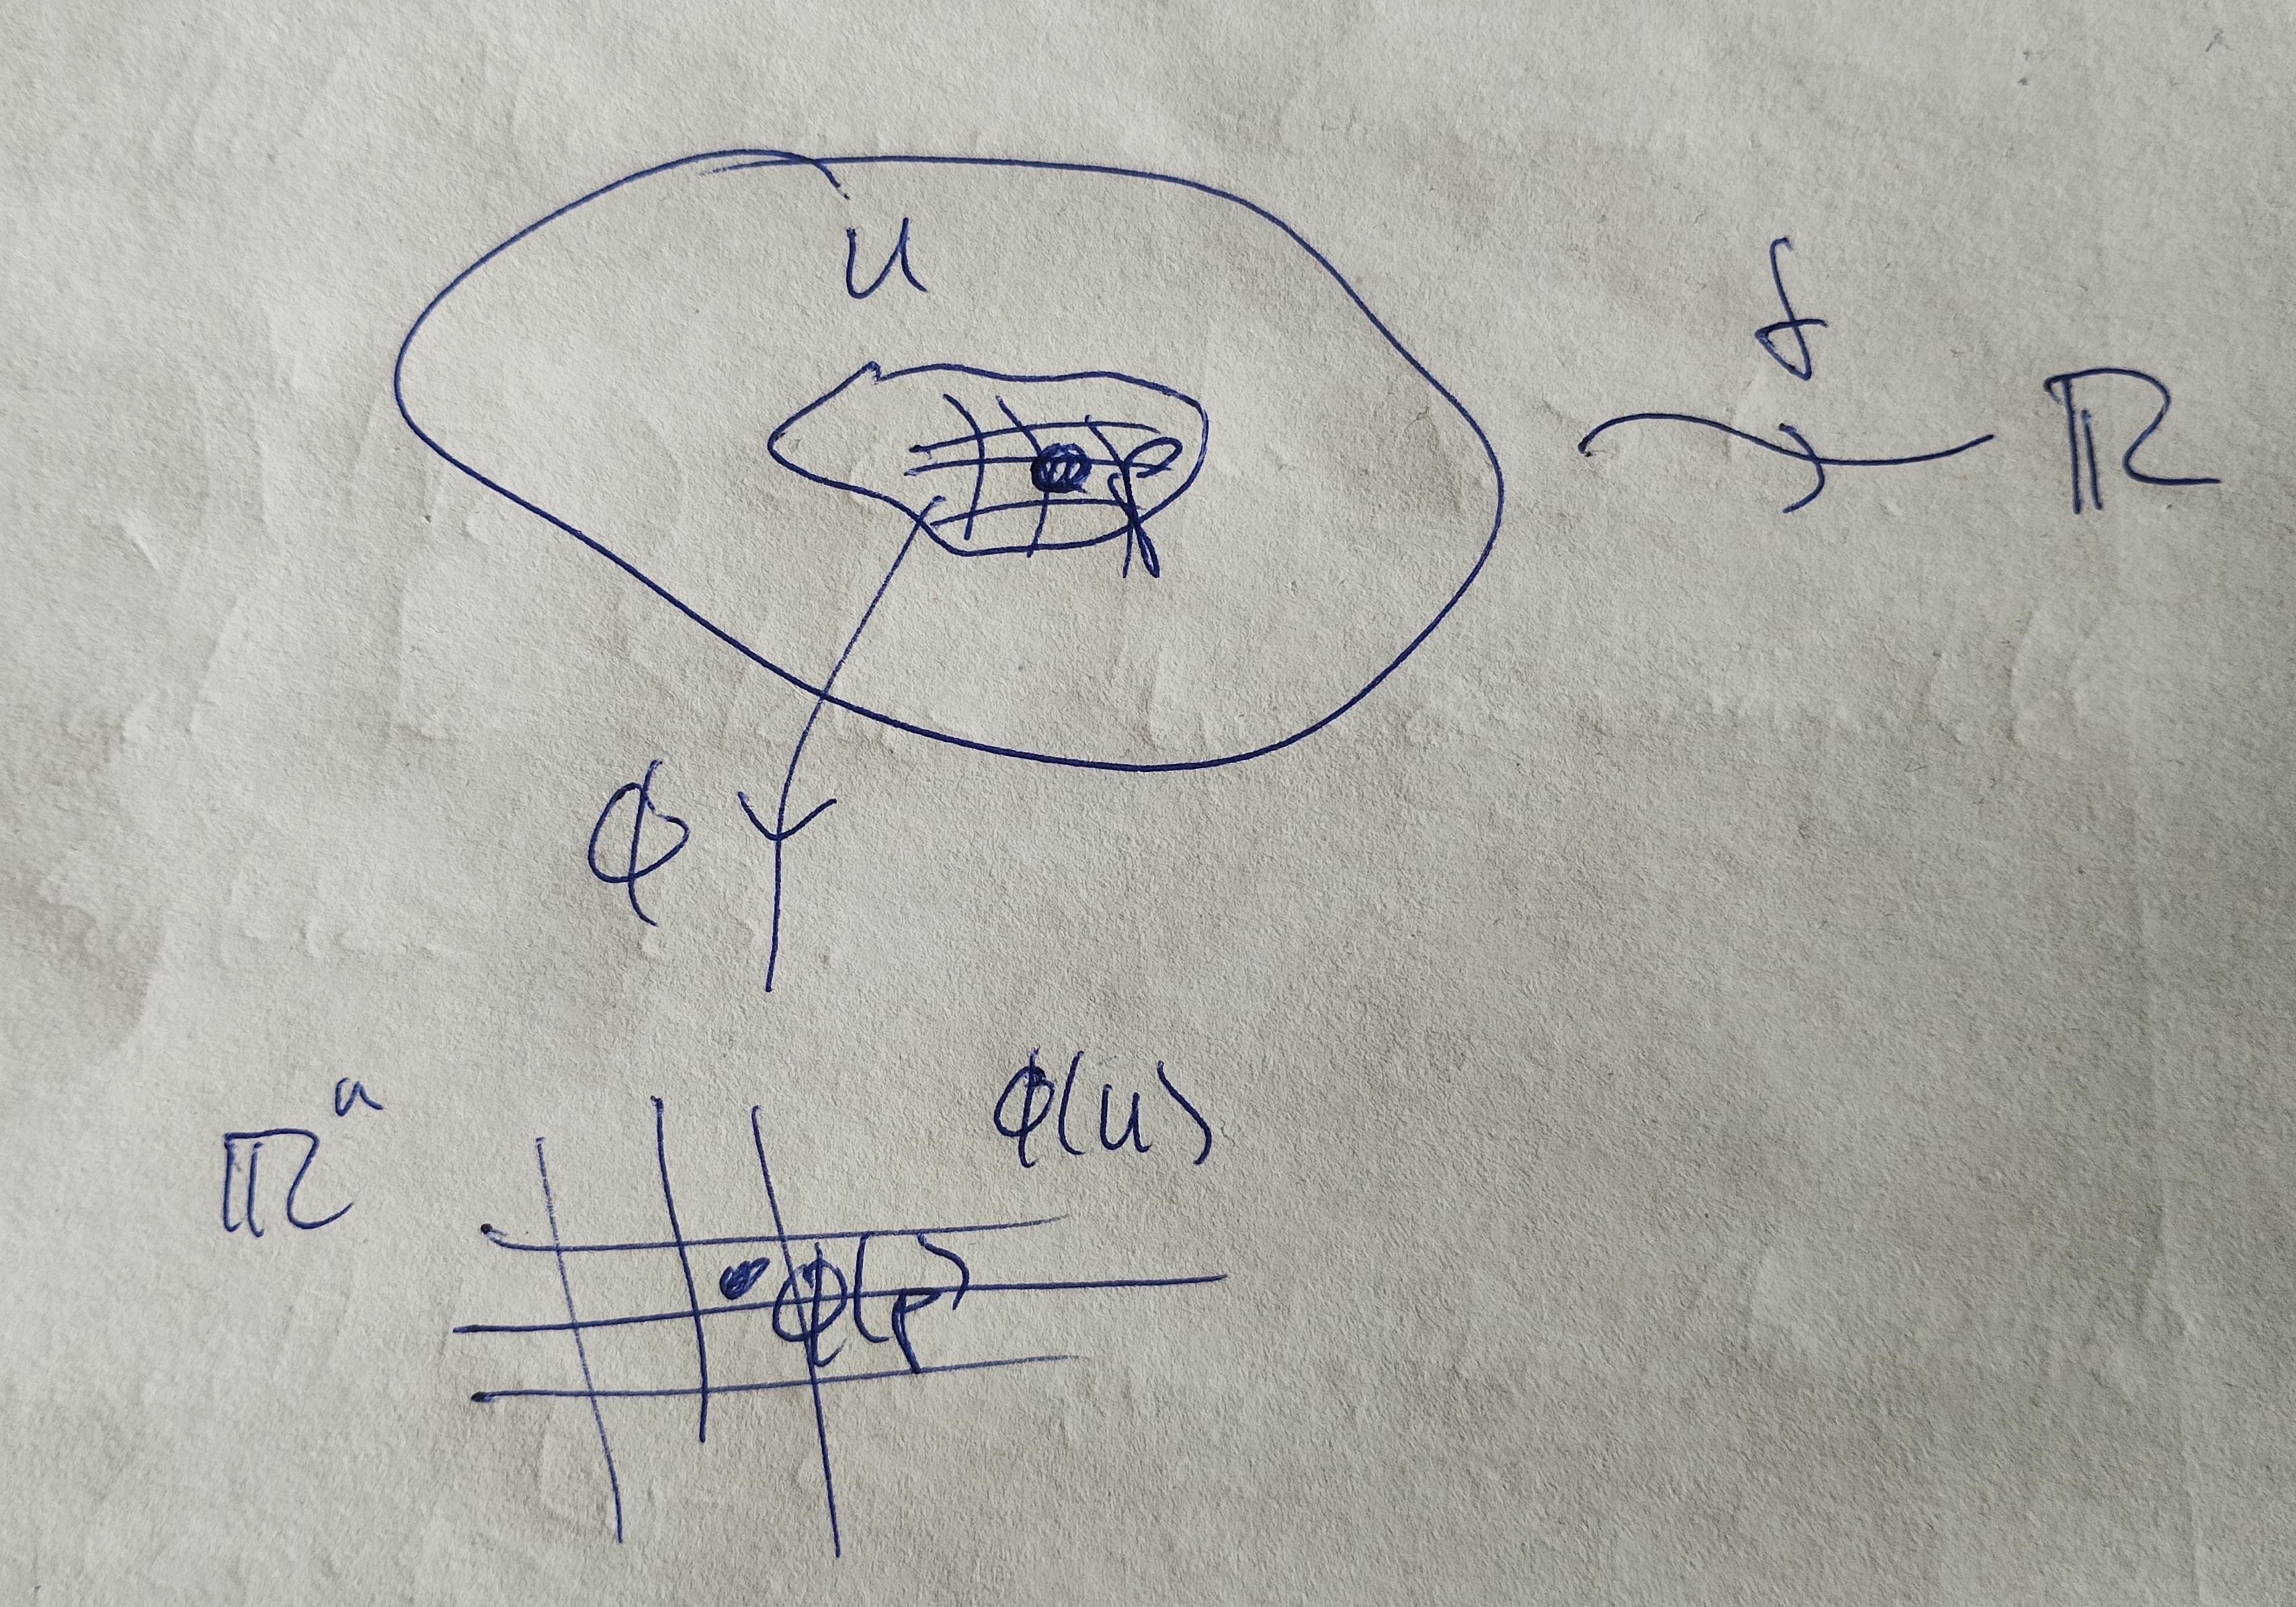 U
f
ℝ
p
ϕ
ℝⁿ
ϕ(U)
ϕ(p)